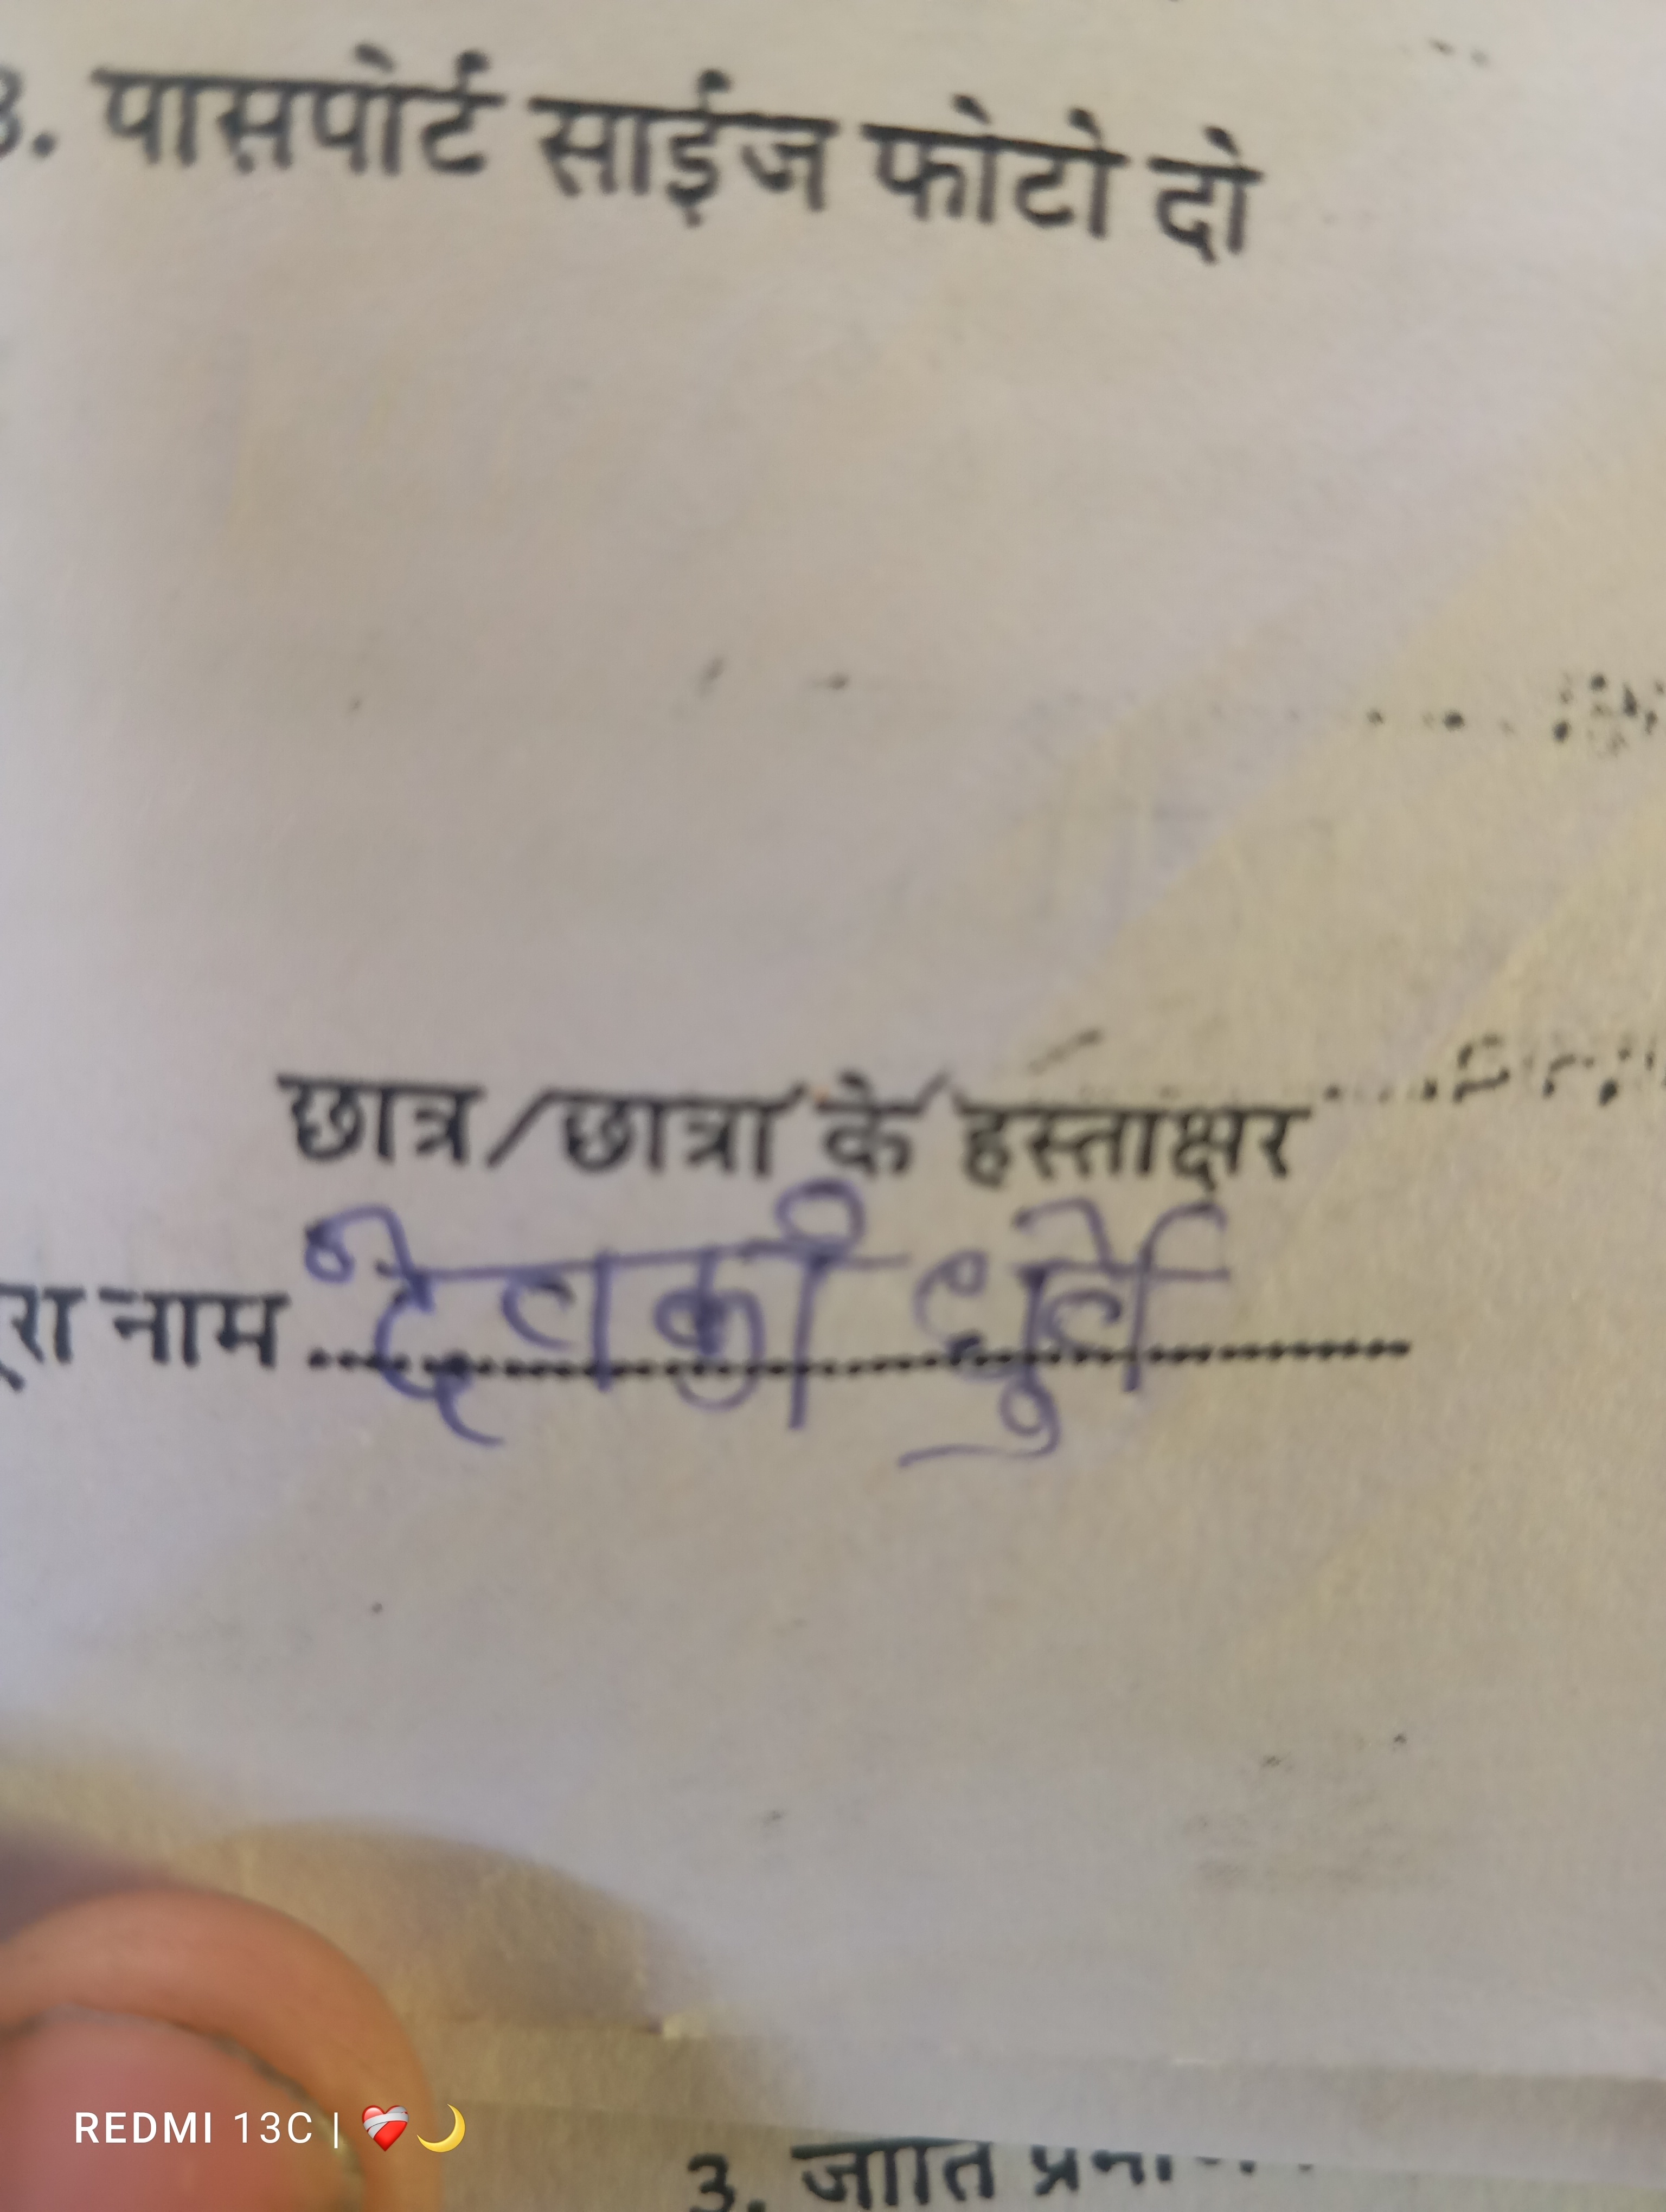 3. पासपोर्ट साईज फोटो दो
छात्र/छात्रा के हस्ताक्षर
नाम देवकी धुर्वे
REDMI 13C | ❤️‍🩹🌙
3. जाति